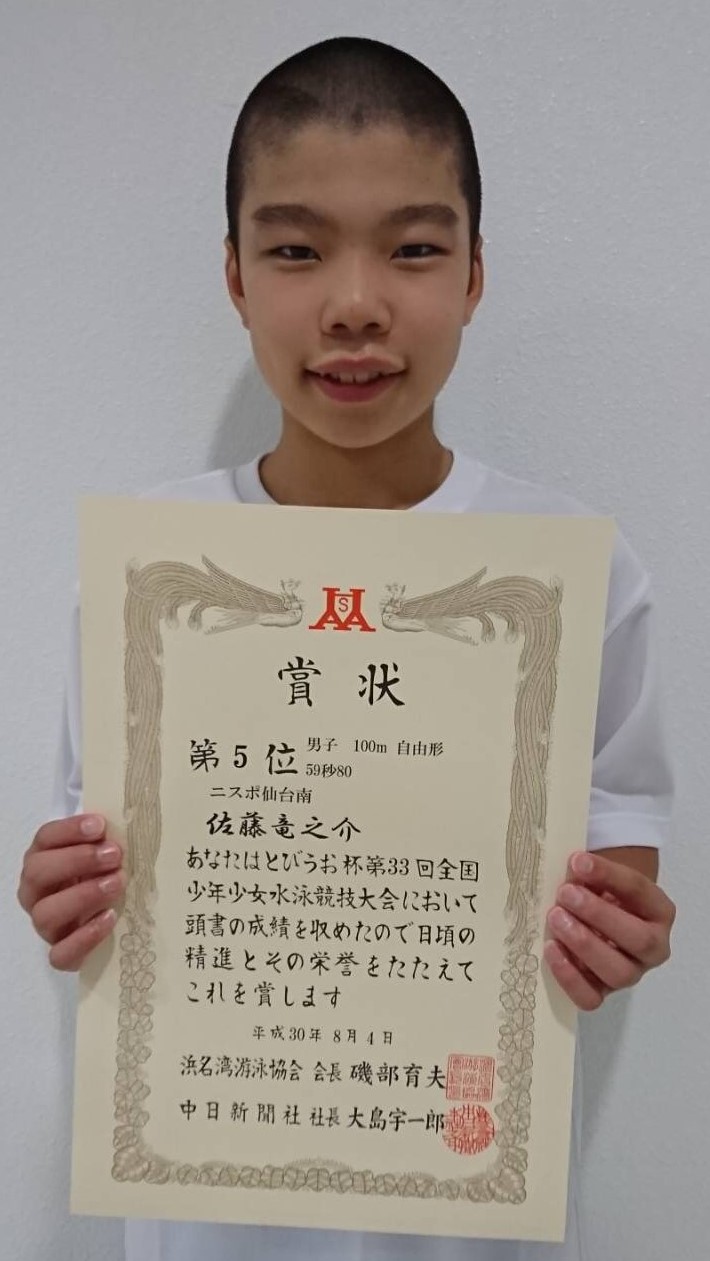 賞状
第5位 男子 100m 自由形
59秒80
ニスポ仙台南
佐藤竜之介
あなたはとびうお杯第33回全国
少年少女水泳競技大会において
頭書の成績を収めたので日頃の
精進とその栄誉をたたえて
これを賞します
平成30年8月4日
浜名湾游泳協会 会長 磯部育夫
中日新聞社 社長 大島宇一郎